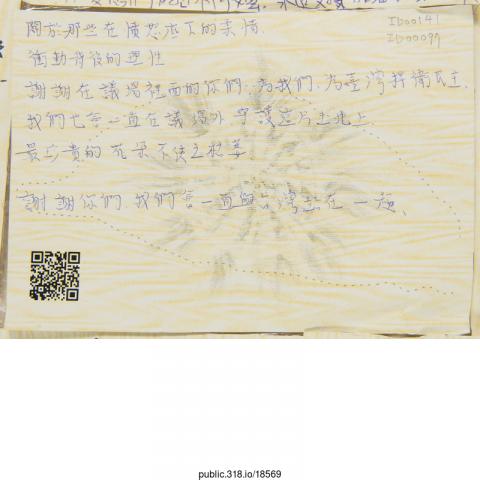 ID00141
ID00097
關於那些在憤怒底下的柔情.
衝動背後的理性
謝謝在議場裡面的你們,為我們,為臺灣捍衛民主.
我們也會一直在議場外守護這片土地上
最珍貴的花朵不使之枯萎.
謝謝你們,我們會一直與台灣站在一起.
public.318.io/18569